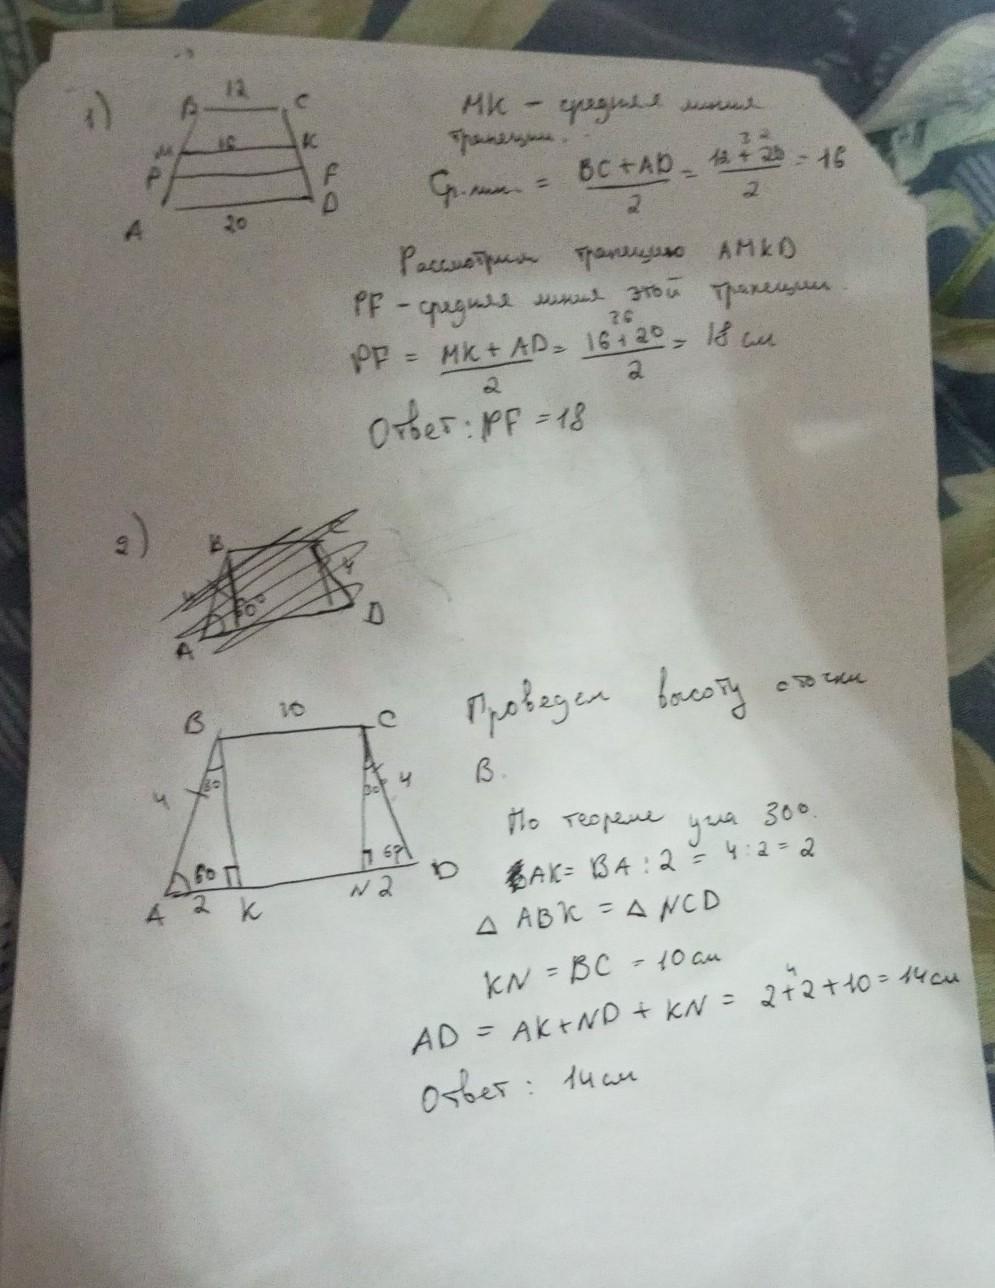 1)
B 12 C
M 16 K
P F
A 20 D
MK - средняя линия
трапеции.
Ср.лин. = BC + AD / 2 = 12 + 20 / 2 = 16
32
Рассмотрим трапецию AMKD
PF - средняя линия этой трапеции.
36
PF = MK + AD / 2 = 16 + 20 / 2 = 18 см
Ответ: PF = 18
2)
B C
4 60° 4
A D
B 10 C
4 30 30 4
60 60
A 2 K N 2 D
Проведем высоту с точки
B.
По теореме угла 30°.
AK = BA : 2 = 4 : 2 = 2
△ ABK = △ NCD
KN = BC = 10 см
4
AD = AK + ND + KN = 2 + 2 + 10 = 14 см
Ответ: 14 см